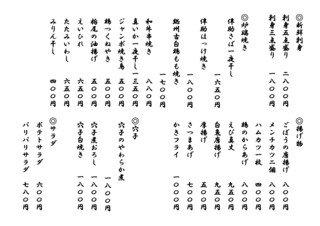 ◎新鮮刺身
刺身五点盛り 二八〇〇円
刺身三点盛り 一八〇〇円
◎炉端焼き
伴助さば一夜干し 一六五〇円
伴助ほっけ焼き 一七〇〇円
総州古白鶏もも焼き 一七〇〇円
和牛串焼き 八八〇円
真いか一夜干し 一三五〇円
ジャンボ焼き鳥 五〇〇円
鶏つくねやき 五五〇円
栃尾の油揚げ 五五〇円
えいひれ 六五〇円
たたみいわし 五五〇円
みりん干し 四〇〇円
◎揚げ物
ごぼうの唐揚げ 八〇〇円
メンチカツ二個 八〇〇円
ハムカツ一枚 四〇〇円
鶏のからあげ 八五〇円
えび真丈 九五〇円
白魚唐揚げ 九五〇円
唐揚げ 五〇〇円
さつまあげ 七〇〇円
かきフライ 一〇〇〇円
◎穴子
穴子のやわらか煮 一八〇〇円
穴子煮おろし 一八〇〇円
穴子白焼き 一八〇〇円
◎サラダ
ポテトサラダ 六〇〇円
パリパリサラダ 七八〇円